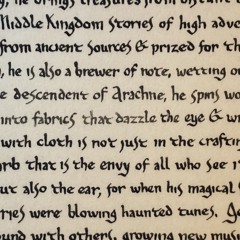 he brings treasures from distant
Middle Kingdom stories of high adve
from ancient sources & prized for th
, he is also a brewer of note, wetting
e descendent of Arachne, he spins wo
into fabrics that dazzle the eye & w
with cloth is not just in the craftin
rb that is the envy of all who see i
ut also the ear, for when his magical
ries were blowing haunted tunes.
ound with others, growing new mus